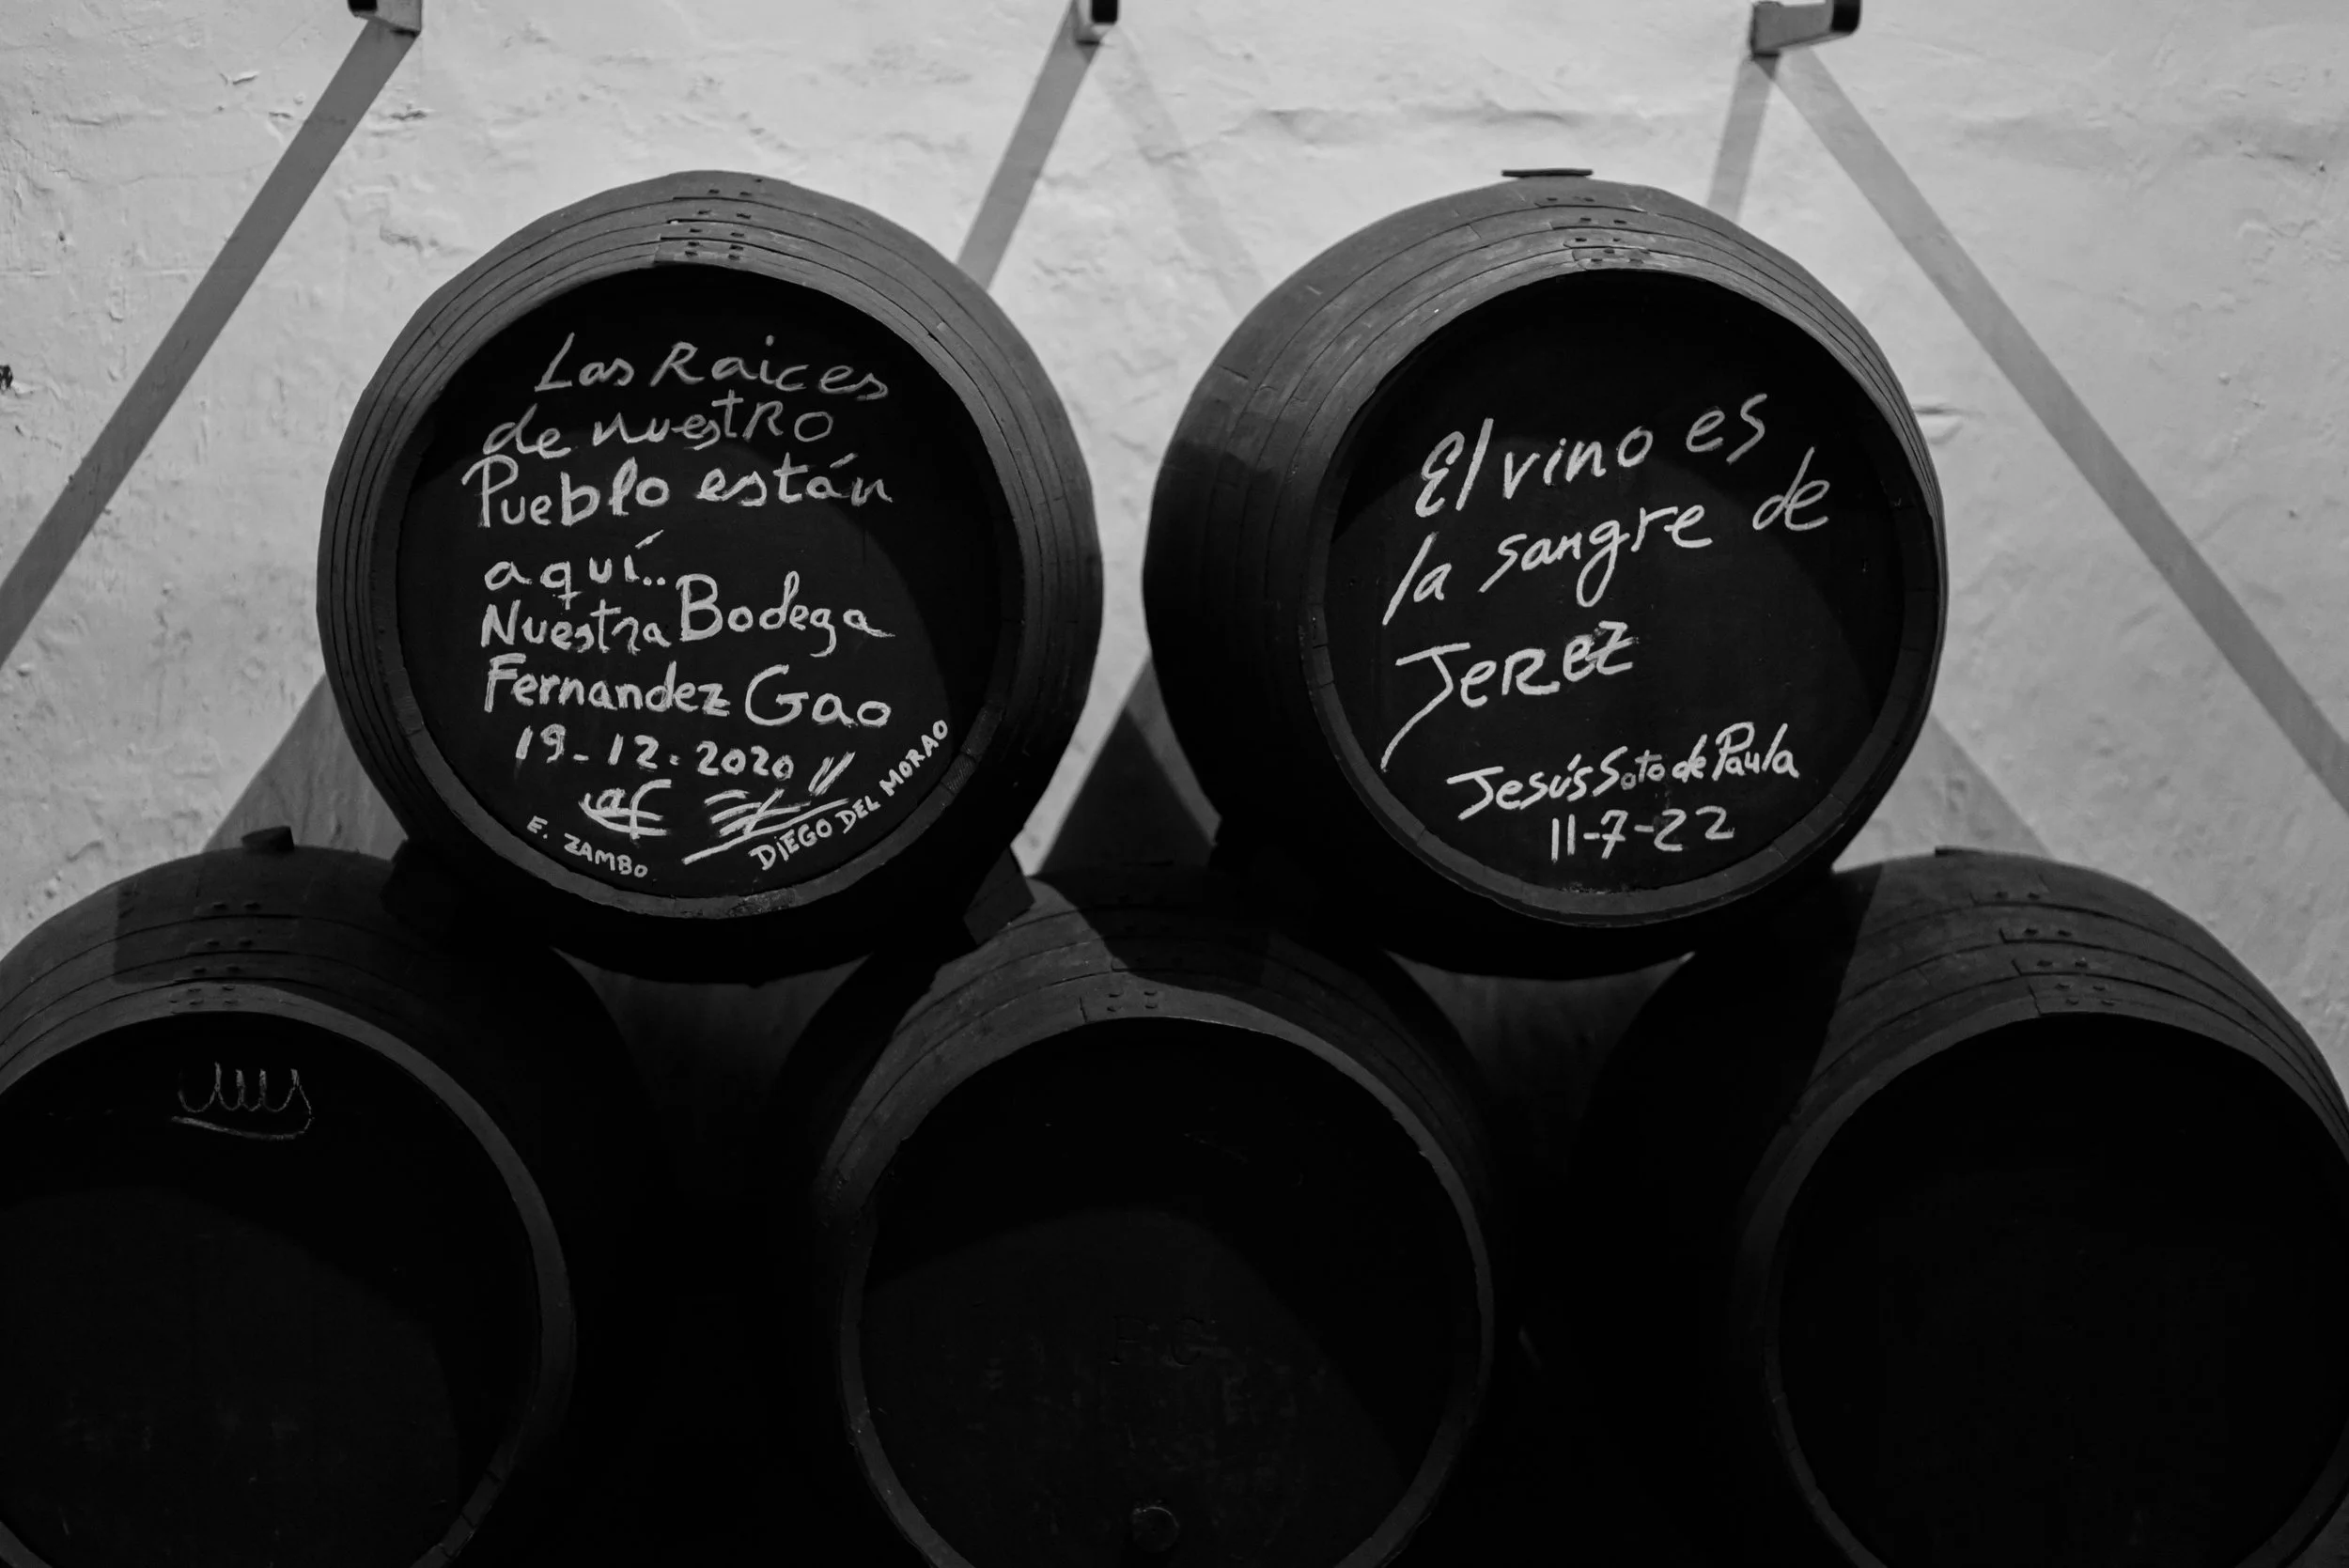 Las Raices
de nuestro
Pueblo están
aquí..
Nuestra Bodega
Fernandez Gao
19-12-2020
E. ZAMBO
DiEGO DEL MORAO
El vino es
la sangre de
JeREZ
Jesús Soto de Paula
11-7-22
F.G